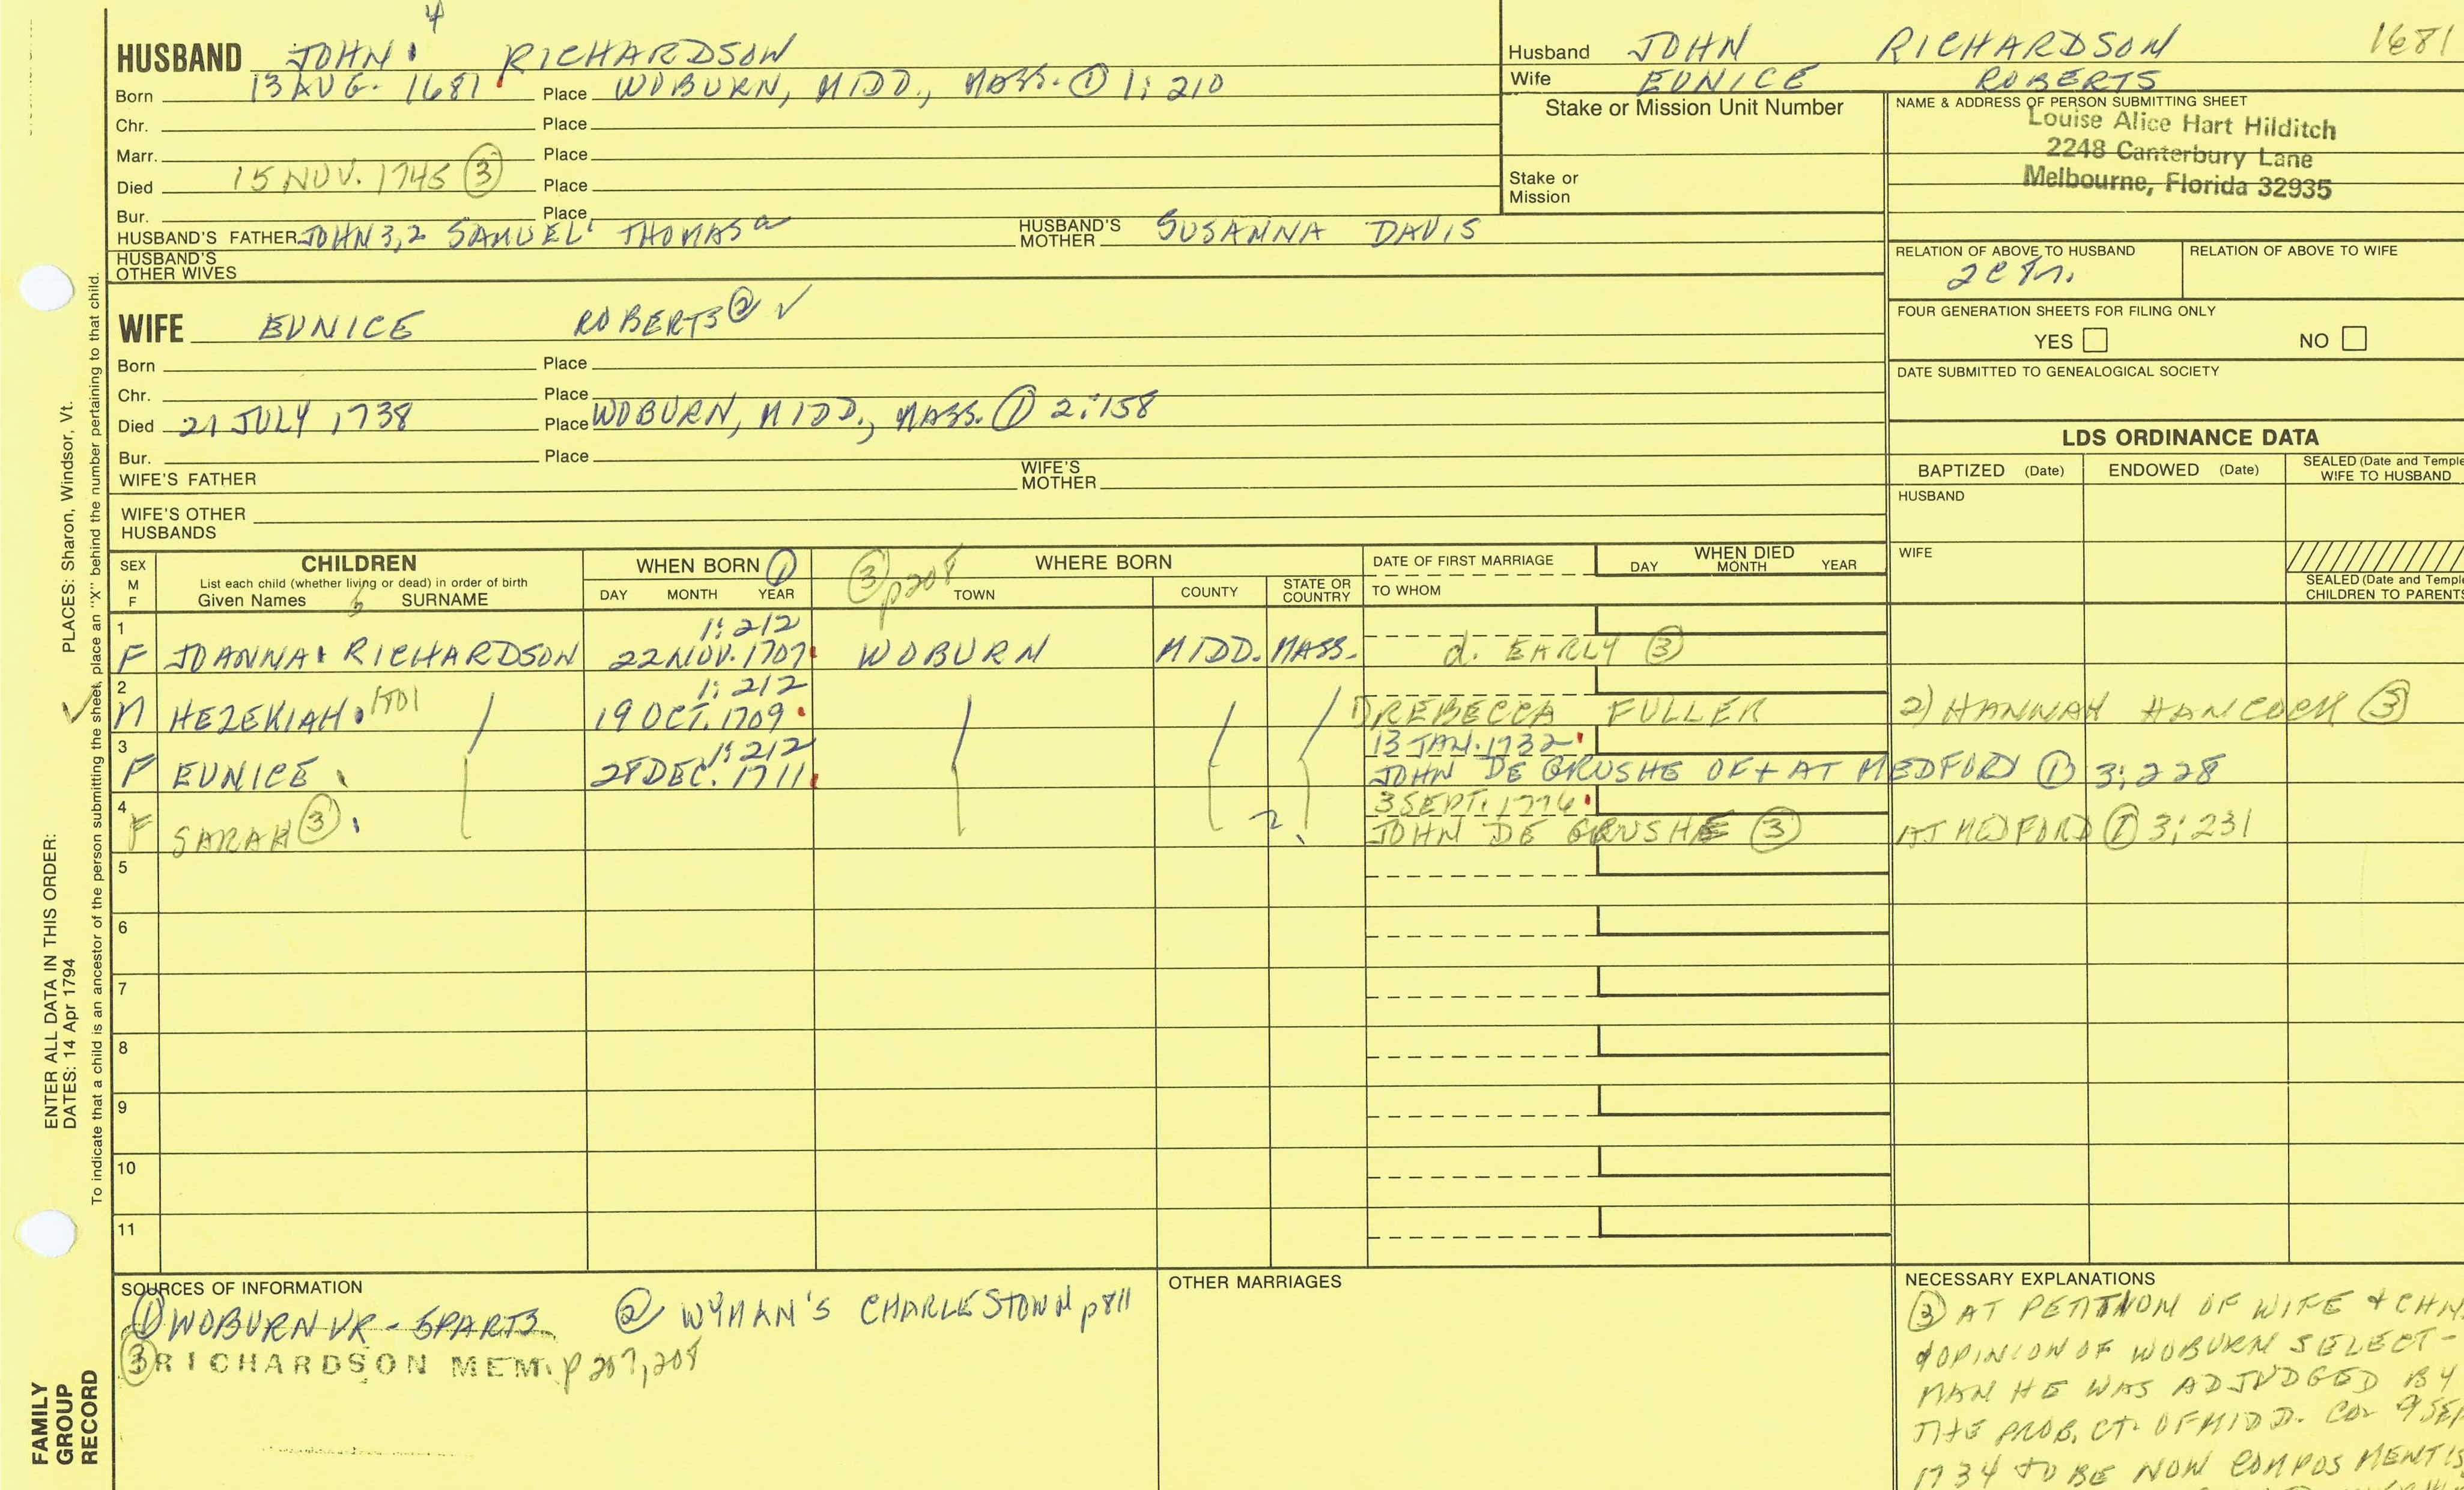 4
HUSBAND JOHN RICHARDSON
Born 13 AUG. 1681 Place WOBURN, MIDD., MASS. ① 1:210
Chr. Place
Marr. Place
Died 15 NOV. 1745 ③ Place
Bur. Place
HUSBAND'S FATHER JOHN 3,2 SAMUEL' THOMAS a HUSBAND'S MOTHER SUSANNA DAVIS
HUSBAND'S OTHER WIVES
WIFE EUNICE ROBERTS ② ✓
Born Place
Chr. Place
Died 21 JULY 1738 Place WOBURN, MIDD., MASS. ① 2:158
Bur. Place
WIFE'S FATHER WIFE'S MOTHER
WIFE'S OTHER HUSBANDS
Husband JOHN RICHARDSON 1681
Wife EUNICE ROBERTS
Stake or Mission Unit Number
Stake or Mission
NAME & ADDRESS OF PERSON SUBMITTING SHEET
Louise Alice Hart Hilditch
2248 Canterbury Lane
Melbourne, Florida 32935
RELATION OF ABOVE TO HUSBAND RELATION OF ABOVE TO WIFE
FOUR GENERATION SHEETS FOR FILING ONLY
YES NO
DATE SUBMITTED TO GENEALOGICAL SOCIETY
LDS ORDINANCE DATA
BAPTIZED (Date) ENDOWED (Date) SEALED (Date and Temple
WIFE TO HUSBAND
HUSBAND
WIFE
SEALED (Date and Temple
CHILDREN TO PARENTS
SEX M F
CHILDREN
List each child (whether living or dead) in order of birth
Given Names SURNAME
WHEN BORN ①
DAY MONTH YEAR
③ p208 WHERE BORN
TOWN COUNTY STATE OR COUNTRY
DATE OF FIRST MARRIAGE
TO WHOM
WHEN DIED
DAY MONTH YEAR
1 1:212
F JOANNA RICHARDSON 22 NOV. 1707 WOBURN MIDD. MASS. d. EARLY ③
2 1:212
M HEZEKIAH 19 OCT. 1709 1) REBECCA FULLER 2) HANNAH HANCOCK ③
3 1:212 13 JAN. 1732
F EUNICE 28 DEC. 1711 JOHN DE GRUSHE OF + AT MEDFORD ① 3:228
4 3 SEPT. 1776
F SARAH ③ JOHN DE GRUSHE ③ AT MEDFORD ① 3:231
5
6
7
8
9
10
11
SOURCES OF INFORMATION
① WOBURN VR - 5 PARTS ② WYMAN'S CHARLESTOWN p811
③ RICHARDSON MEM. p 207, 208
OTHER MARRIAGES
NECESSARY EXPLANATIONS
③ AT PETITION OF WIFE + CHN.
& OPINION OF WOBURN SELECT-
MAN HE WAS ADJUDGED BY
THE PROB. CT. OF MIDD. CO. 9 SEP
1734 TO BE NON COMPOS MENTIS
PLACES: Sharon, Windsor, Vt.
ENTER ALL DATA IN THIS ORDER:
DATES: 14 Apr 1794
To indicate that a child is an ancestor of the person submitting the sheet, place an "X" behind the number pertaining to that child.
FAMILY
GROUP
RECORD